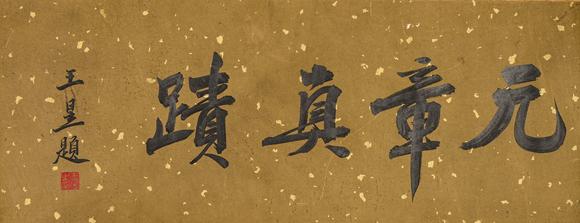 元章真蹟
王昰題